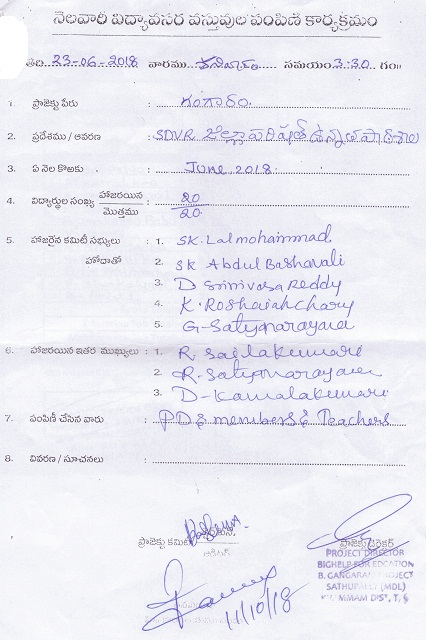 నెలవారీ విద్యావసర వస్తువుల పంపిణీ కార్యక్రమం
తేది 23-06-2018 వారము శనివారం సమయం 3:30 గం॥
1. ప్రాజెక్టు పేరు : గంగారం.
2. ప్రదేశము / ఆవరణ : SDVR జిల్లా పరిషత్ ఉన్నత పాఠశాల
3. ఏ నెల కొఱకు : June 2018
4. విద్యార్థుల సంఖ్య హాజరయిన : 20
మొత్తము 20
5. హాజరైన కమిటీ సభ్యులు : 1. SK. Lalmohammad
హోదాతో 2. SK Abdul Bashavali
3. D Srinivasa Reddy
4. K. Roshaiah Chary
5. G. Satyanarayana
6. హాజరయిన ఇతర ముఖ్యులు : 1. R. Sailakumari
2. R. Satyanarayana
3. D. Kamalakumari
7. పంపిణీ చేసిన వారు : PD & members & Teachers
8. వివరణ / సూచనలు :
ప్రాజెక్టు కమిటీ
ఆడిటర్
ప్రాజెక్టు డైరెక్టర్
PROJECT DIRECTOR
BIGHELP FOR EDCATION
B. GANGARAM PROJECT
SATHUPALLY (MDL)
KHAMMAM DIST, T.S
11/10/18